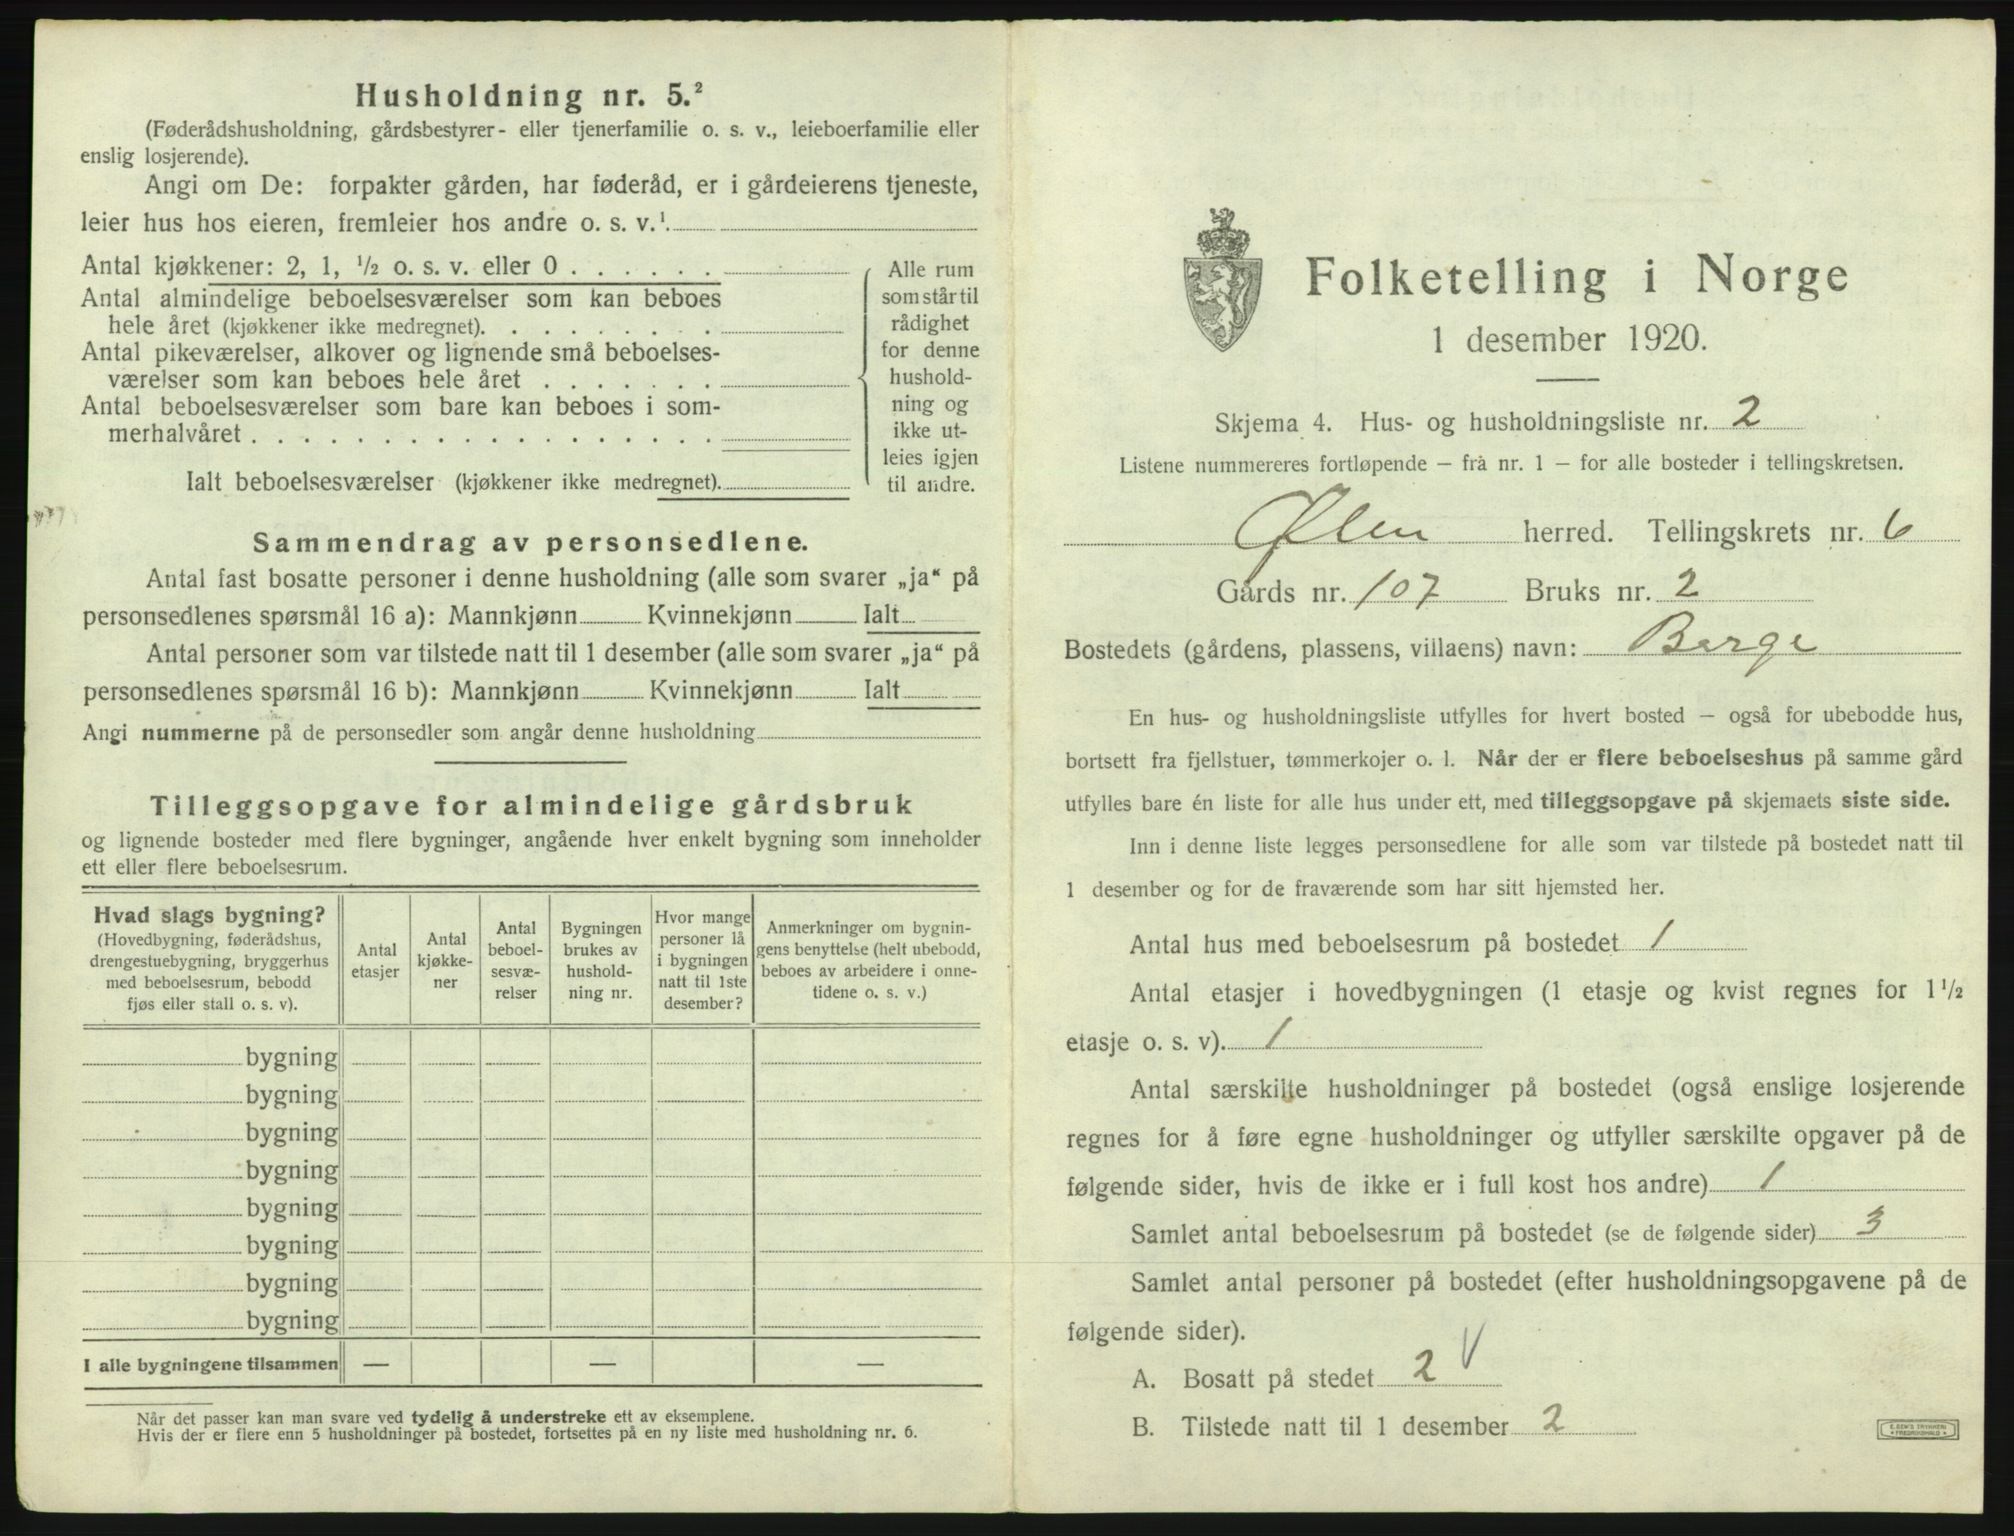 Husholdning nr. 5.²
(Føderådshusholdning, gårdsbestyrer- eller tjenerfamilie o. s. v., leieboerfamilie eller
enslig losjerende).
Angi om De: forpakter gården, har føderåd, er i gårdeierens tjeneste,
leier hus hos eieren, fremleier hos andre o. s. v.¹
Antal kjøkkener: 2, 1, ½ o. s. v. eller 0 . . . . . .
Antal almindelige beboelsesværelser som kan beboes
hele året (kjøkkener ikke medregnet). . . . . . . . .
Antal pikeværelser, alkover og lignende små beboelses-
værelser som kan beboes hele året . . . . . . .
Antal beboelsesværelser som bare kan beboes i som-
merhalvåret . . . . . . . . . . . . . . . . . .
Ialt beboelsesværelser (kjøkkener ikke medregnet).
Alle rum
som står til
rådighet
for denne
hushold-
ning og
ikke ut-
leies igjen
til andre.
Sammendrag av personsedlene.
Antal fast bosatte personer i denne husholdning (alle som svarer „ja“ på
personsedlenes spørsmål 16 a): Mannkjønn Kvinnekjønn Ialt
Antal personer som var tilstede natt til 1 desember (alle som svarer „ja“ på
personsedlenes spørsmål 16 b): Mannkjønn Kvinnekjønn Ialt
Angi nummerne på de personsedler som angår denne husholdning
Tilleggsopgave for almindelige gårdsbruk
og lignende bosteder med flere bygninger, angående hver enkelt bygning som inneholder
ett eller flere beboelsesrum.
Hvad slags bygning?
(Hovedbygning, føderådshus,
drengestuebygning, bryggerhus
med beboelsesrum, bebodd
fjøs eller stall o. s. v).
Antal
etasjer
Antal
kjøkke-
ner
Antal
beboel-
sesvæ-
relser
Bygningen
brukes av
hushold-
ning nr.
Hvor mange
personer lå
i bygningen
natt til 1ste
desember?
Anmerkninger om bygnin-
gens benyttelse (helt ubebodd,
beboes av arbeidere i onne-
tidene o. s. v.)
bygning
bygning
bygning
bygning
bygning
bygning
bygning
bygning
I alle bygningene tilsammen — — —
Når det passer kan man svare ved tydelig å understreke ett av eksemplene.
Hvis der er flere enn 5 husholdninger på bostedet, fortsettes på en ny liste med husholdning nr. 6.
Folketelling i Norge
1 desember 1920.
Skjema 4. Hus- og husholdningsliste nr. 2
Listene nummereres fortløpende — frå nr. 1 — for alle bosteder i tellingskretsen.
Ølen herred. Tellingskrets nr. 6
Gårds nr. 107 Bruks nr. 2
Bostedets (gårdens, plassens, villaens) navn: Berge
En hus- og husholdningsliste utfylles for hvert bosted — også for ubebodde hus,
bortsett fra fjellstuer, tømmerkojer o. l. Når der er flere beboelseshus på samme gård
utfylles bare én liste for alle hus under ett, med tilleggsopgave på skjemaets siste side.
Inn i denne liste legges personsedlene for alle som var tilstede på bostedet natt til
1 desember og for de fraværende som har sitt hjemsted her.
Antal hus med beboelsesrum på bostedet 1
Antal etasjer i hovedbygningen (1 etasje og kvist regnes for 1½
etasje o. s. v). 1
Antal særskilte husholdninger på bostedet (også enslige losjerende
regnes for å føre egne husholdninger og utfyller særskilte opgaver på de
følgende sider, hvis de ikke er i full kost hos andre) 1
Samlet antal beboelsesrum på bostedet (se de følgende sider) 3
Samlet antal personer på bostedet (efter husholdningsopgavene på de
følgende sider).
A. Bosatt på stedet 2 V
B. Tilstede natt til 1 desember 2